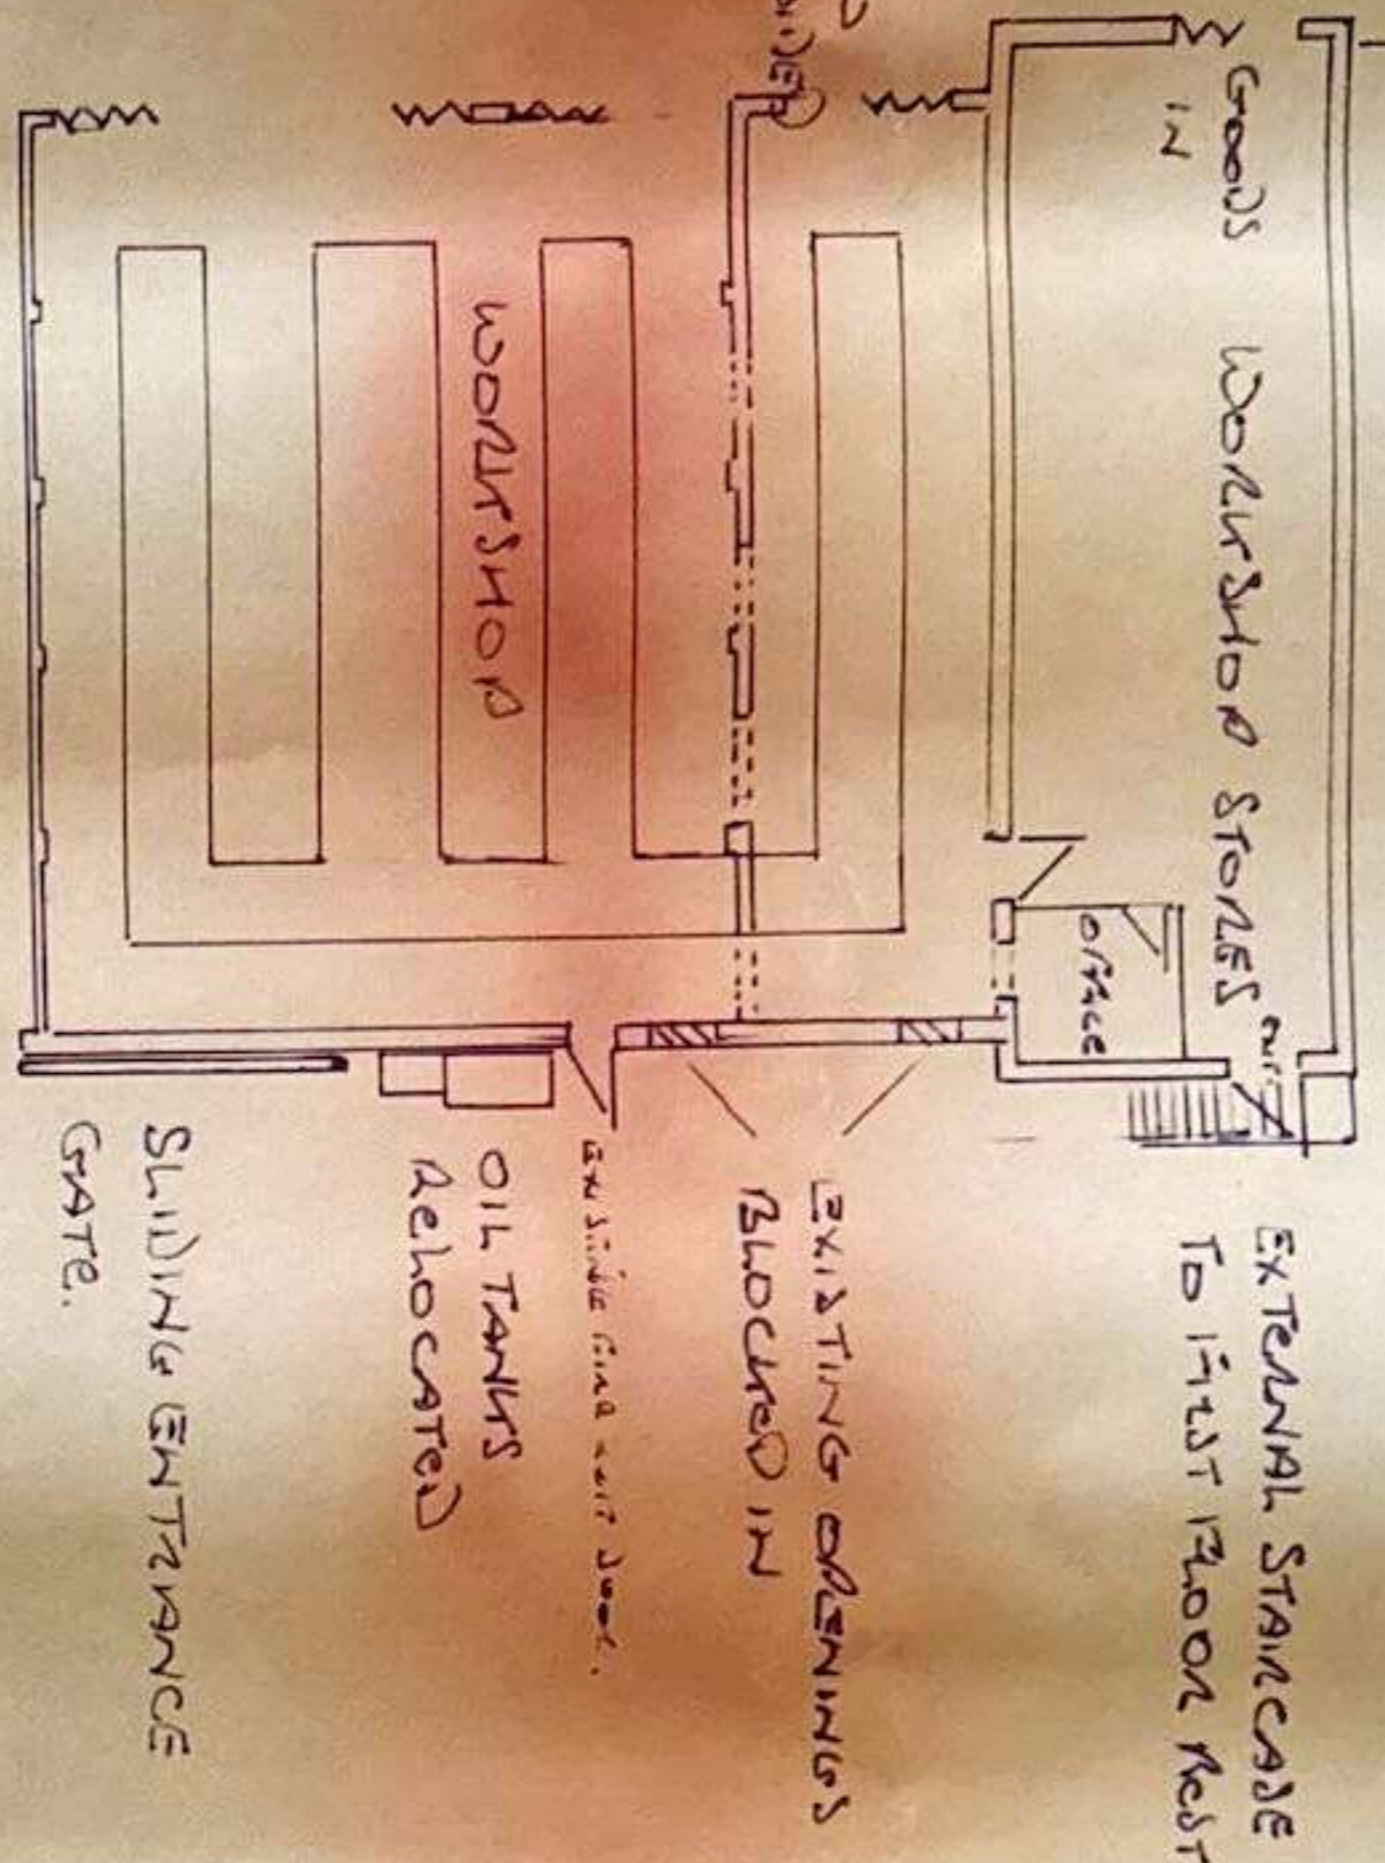 GOODS
IN
WORKSHOP STORES
WORKSHOP
OFFICE
EXIT
EXTERNAL STAIRCASE
TO FIRST FLOOR REST
EXISTING OPENINGS
BLOCKED IN
EXISTING FIRE EXIT DOOR.
OIL TANKS
RELOCATED
SLIDING ENTRANCE
GATE.